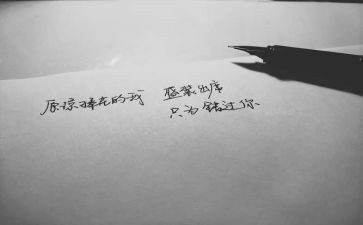 原谅捧花的我 盛装出席
只为错过你